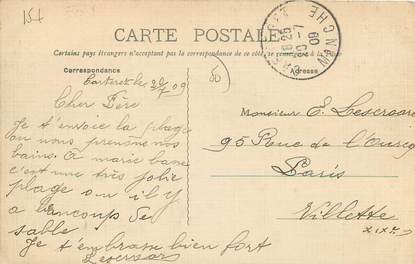 CARTE POSTALE
Certains pays étrangers n'acceptent pas la correspondance de ce côté, se renseigner à la
Correspondance
Adresse
MANCHE
20-7
09
Carteret le 20/7 09
Cher Père
Je t'envoie la plage
ou nous prenons nos
bains. A marée basse
c'est une très jolie
plage ou il y
a beaucoup de
sable.
Je t'embrasse bien fort
Monsieur E.
95 Rue de l'Ourcq
Paris
Villette
XIXe